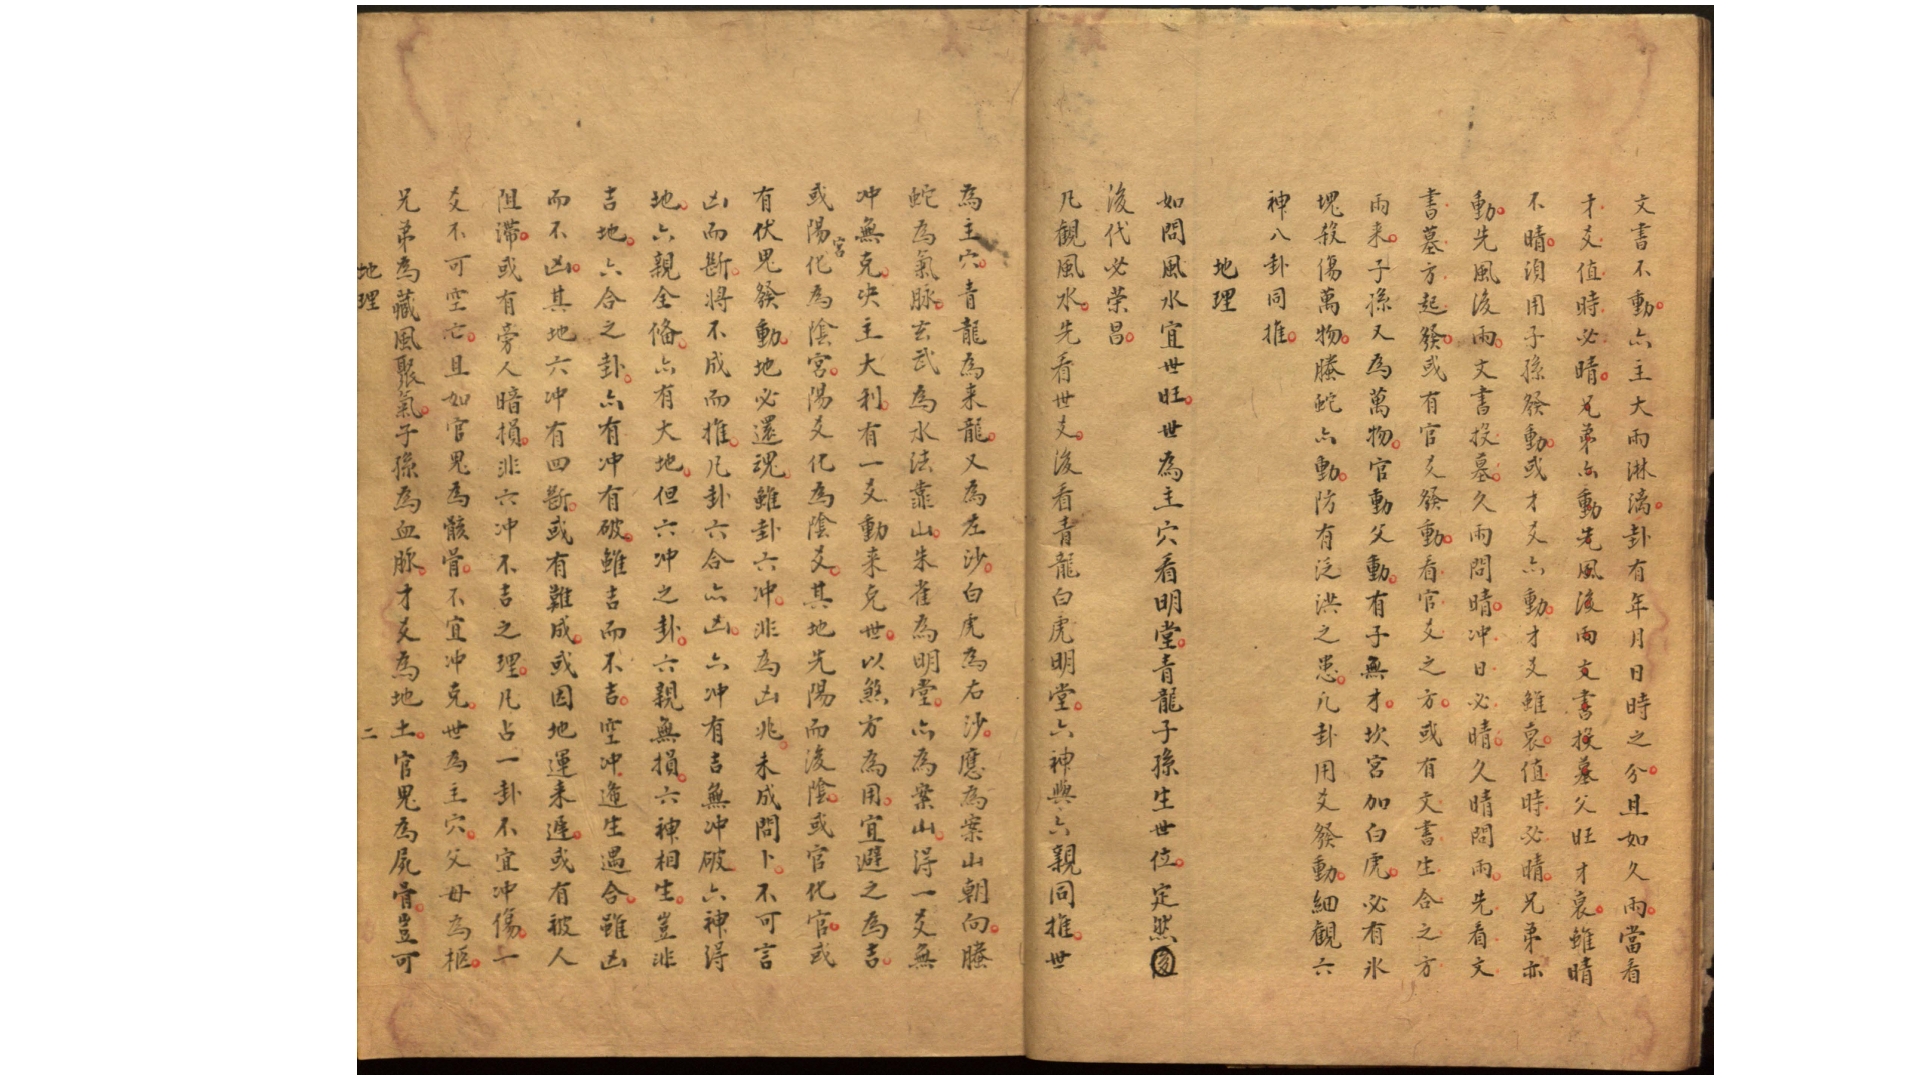 文書不動亦主大雨淋漓卦有年月日時之分且如久雨當看
才爻值時必晴兄弟亦動先風後雨文書投墓父旺才衰雖晴
不晴須用子孫發動或才爻亦動才爻雖衰值時必晴兄弟亦
動先風後雨文書投墓久雨問晴冲日必晴久晴問雨先看文
書墓方起發或有官爻發動看官爻之方或有文書生合之方
雨来子孫又為萬物官動父動有子無才坎宮加白虎必有氷
塊殺傷萬物螣蛇亦動防有泛洪之患凡卦用爻發動細観六
神八卦同推
地理
如問風水宜世旺世為主穴看明堂青龍子孫生世位定然
後代必荣昌
凡観風水先看世爻後看青龍白虎明堂六神與六親同推世
為主穴青龍為来龍又為左沙白虎為右沙應為案山朝向螣
蛇為氣脉玄武為水法靠山朱雀為明堂亦為案山得一爻無
冲無克决主大利有一爻動来克世以煞方為用宜避之為吉
或陽宮化為陰宮陽爻化為陰爻其地先陽而後陰或官化官或
有伏鬼發動地必還魂雖卦六冲非為凶兆未成問卜不可言
凶而断将不成而推凡卦六合亦凶六冲有吉無冲破六神得
地六親全俻亦有大地但六冲之卦六親無損六神相生豈非
吉地六合之卦亦有冲有破雖吉而不吉空冲逢生遇合雖凶
而不凶其地六冲有四断或有難成或因地運来遲或有被人
阻滞或有旁人暗損非六冲不吉之理凡占一卦不宜冲傷一
爻不可空亡且如官鬼為骸骨不宜冲克世為主穴父母為柩
兄弟為藏風聚氣子孫為血脉才爻為地土官鬼為屍骨豈可
地理 二